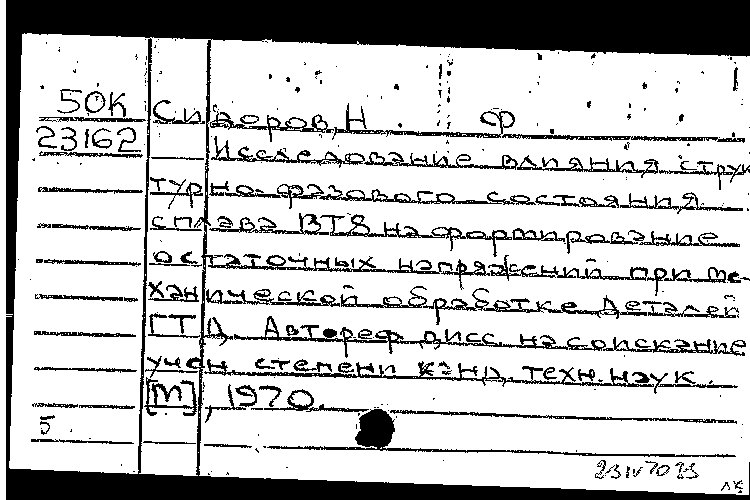 50К Сидоров, Н. Ф
23162 Исследование влияния струк
турно-фазового состояния
сплава ВТ8 на формирование
остаточных напряжений при ме-
ханической обработке деталей
ГТД. Автореф. дисс. на соискание
учен. степени канд. техн. наук.
[М], 1970.
5
23 IV 70